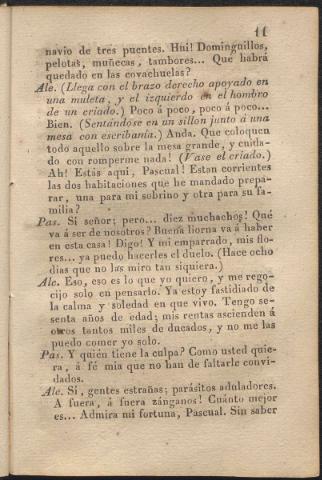 11
navio de tres puentes. Hui! Dominguillos,
pelotas, muñecas, tambores... Que habrá
quedado en las covachuelas?
Ale. (Llega con el brazo derecho apoyado en
una muleta, y el izquierdo en el hombro
de un criado.) Poco á poco, poco á poco...
Bien. (Sentándose en un sillon junto á una
mesa con escribanía.) Anda. Que coloquen
todo aquello sobre la mesa grande, y cuida-
do con romperme nada! (Vase el criado.)
Ah! Estás aqui, Pascual! Estan corrientes
las dos habitaciones que he mandado prepa-
rar, una para mi sobrino y otra para su fa-
milia?
Pas. Si señor; pero... diez muchachos! Qué
va á ser de nosotros? Buena liorna va á haber
en esta casa! Digo! Y mi emparrado, mis flo-
res... ya puedo hacerles el duelo. (Hace ocho
dias que no las miro tan siquiera.)
Ale. Eso, eso es lo que yo quiero, y me rego-
cijo solo en pensarlo. Ya estoy fastidiado de
la calma y soledad en que vivo. Tengo se-
senta años de edad; mis rentas ascienden á
otros tantos miles de ducados, y no me las
puedo comer yo solo.
Pas. Y quién tiene la culpa? Como usted quie-
ra, á fé mia que no han de faltarle convi-
dados.
Ale. Si, gentes estrañas; parásitos aduladores.
A fuera, á fuera zánganos! Cuánto mejor
es... Admira mi fortuna, Pascual. Sin saber